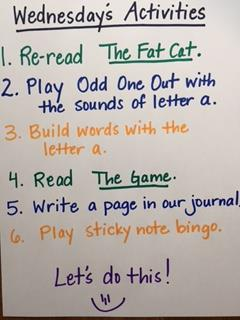 Wednesday's Activities
1. Re-read The Fat Cat.
2. Play Odd One Out with
the sounds of letter a.
3. Build words with the
letter a.
4. Read The Game.
5. Write a page in our journal.
6. Play sticky note bingo.
Let's do this!